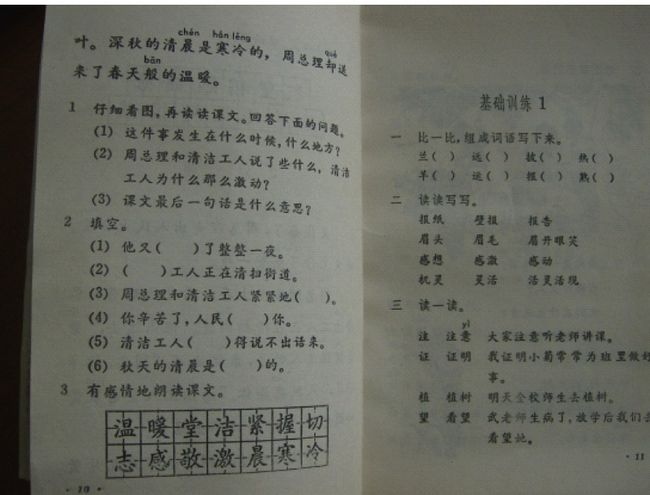 chén hán lěng
叶。深秋的清晨是寒冷的，周总理却送
bān què
来了春天般的温暖。
1 仔细看图，再读读课文。回答下面的问题。
(1) 这件事发生在什么时候，什么地方？
(2) 周总理和清洁工人说了些什么，清洁
工人为什么那么激动？
(3) 课文最后一句话是什么意思？
2 填空。
(1) 他又( )了整整一夜。
(2) ( )工人正在清扫街道。
(3) 周总理和清洁工人紧紧地( )。
(4) 你辛苦了，人民( )你。
(5) 清洁工人( )得说不出话来。
(6) 秋天的清晨是( )的。
3 有感情地朗读课文。
温暖堂洁紧握切
志感敬激晨寒冷
· 10 ·
基础训练 1
一 比一比，组成词语写下来。
兰( ) 远( ) 披( ) 热( )
羊( ) 送( ) 报( ) 熟( )
二 读读写写。
报纸 壁报 报告
眉头 眉毛 眉开眼笑
感想 感激 感动
机灵 灵活 活灵活现
三 读一读。
yì
注 注意 大家注意听老师讲课。
证 证明 我证明小菊常常为班里做好
事。
植 植树 明天全校师生去植树。
望 看望 武老师生病了，放学后我们去
看望她。
· 11